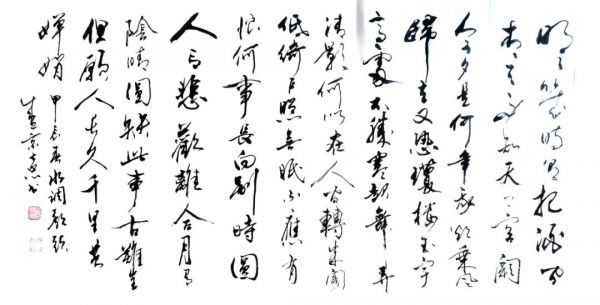 明月幾時有把酒問
青天不知天上宮闕
今夕是何年我欲乘風
歸去又恐瓊樓玉宇
高處不勝寒起舞弄
清影何似在人間轉朱閣
低綺戶照無眠不應有
恨何事長向別時圓
人有悲歡離合月有
陰晴圓缺此事古難全
但願人長久千里共
嬋娟
甲辰春水調歌頭